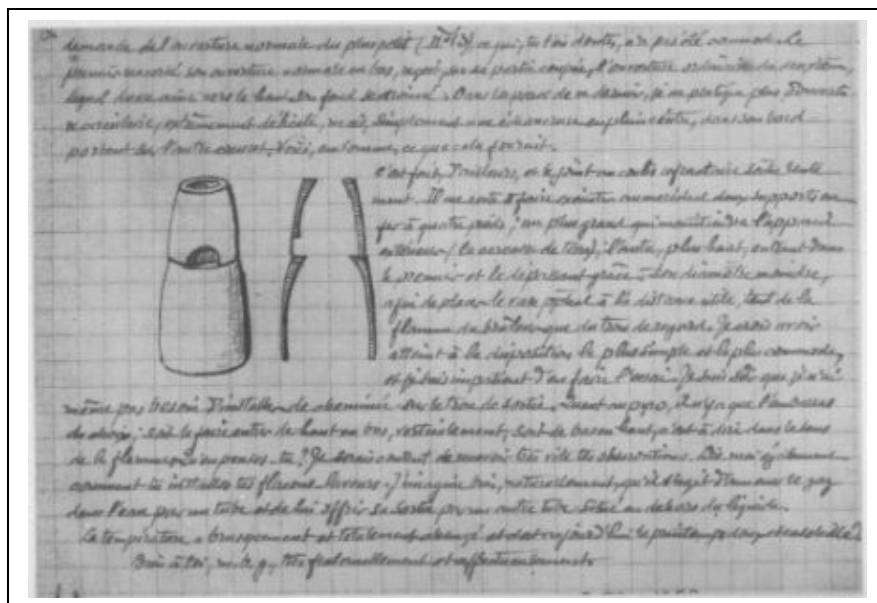 demande de l'ouverture normale du plus petit (N° 13) ce qui, tu t'en doutes, n'a pas été commode. Le
premier renversé son ouverture normale en bas, reçoit, par sa partie coupée, l'ouverture ordinaire du
lequel dresse ainsi vers le haut son fond sectionné. Dans la paroi de ce dernier, je ne pratique plus d'ouverture
extrêmement délicate, mais, simplement une échancrure en pleine dans son bord
portant sur l'autre creuset. Voici, en somme, ce que cela fournit.
C'est fait, d'ailleurs, et le joint au réfractaire sèche lente
ment. Il me reste à faire exécuter deux supports en
fer à quatre pieds; un plus grand qui maintiendra l'appareil
extérieur (le de terre); l'autre, plus haut, entrant dans
le premier et le dépassant grâce à son diamètre moindre,
afin de placer le vase à la distance utile, tant de la
flamme du brûleur que du trou de regard. Je crois avoir
atteint à la disposition la plus simple et la plus commode,
et je suis impatient d'en faire l'essai. Je suis sûr que je n'ai
même pas besoin d'installer de cheminée sur le trou de sortie. Quant au pyro, il n'y a que l'embarras
du choix; soit le faire entrer de haut en bas, verticalement, soit de bas en haut, c'est à dire dans le sens
de la flamme. Qu'en penses-tu? Je serais content de recevoir très vite tes observations. Dis-moi également
comment tu installes tes flacons laveurs. J'imagine, moi, naturellement, qu'il s'agit d'amener le gaz
dans l'eau par un tube et de lui offrir sa sortie par un autre tube situé au dehors du liquide.
La température a brusquement et totalement changé et c'est aujourd'hui le printemps doux et ensoleillé.
Bien à toi, m. c. g., très fraternellement et affectueusement.